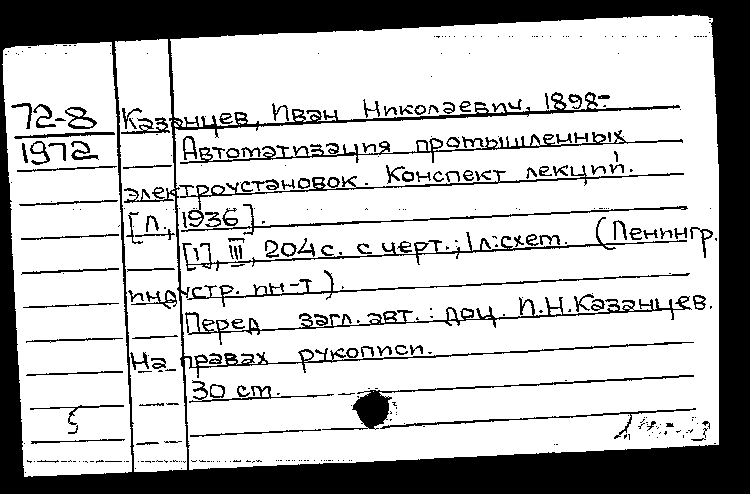 72-8
1972
Казанцев, Иван Николаевич, 1898-
Автоматизация промышленных
электроустановок. Конспект лекций.
[Л., 1936].
[1], III, 204 с. с черт.; 1 л. схем. (Ленингр.
индустр. ин-т).
Перед загл. авт.: доц. И.Н. Казанцев.
На правах рукописи.
30 см.
5